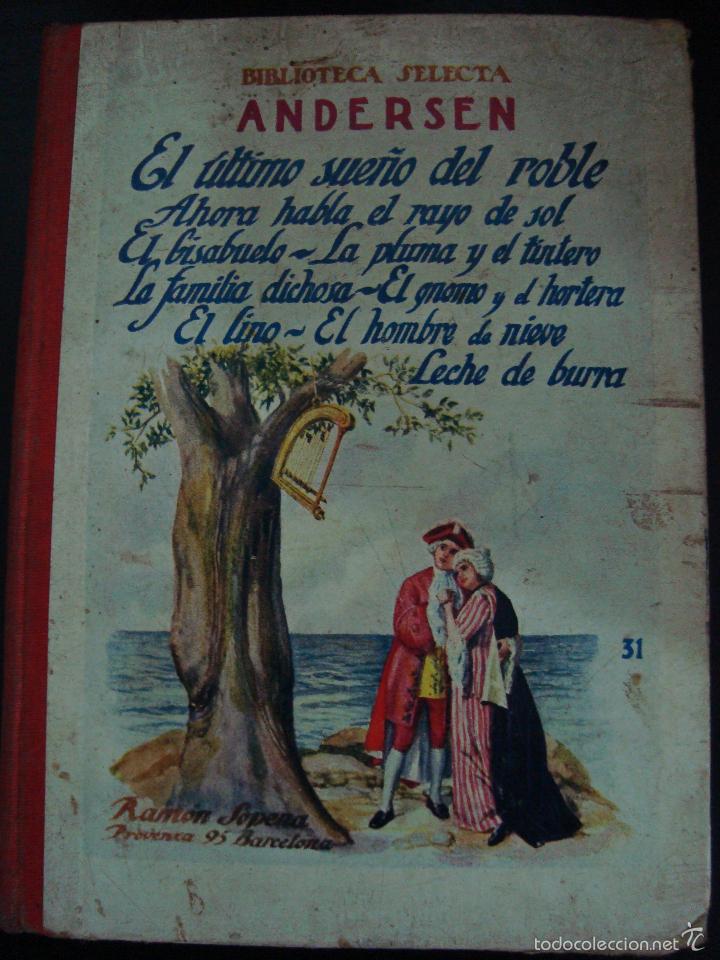 BIBLIOTECA SELECTA
ANDERSEN
El último sueño del roble
Ahora habla el rayo de sol
El bisabuelo ~ La pluma y el tintero
La familia dichosa ~ El gnomo y el hortera
El lino ~ El hombre de nieve
Leche de burra
31
Ramón Sopena
Provenza 95 Barcelona
todocoleccion.net